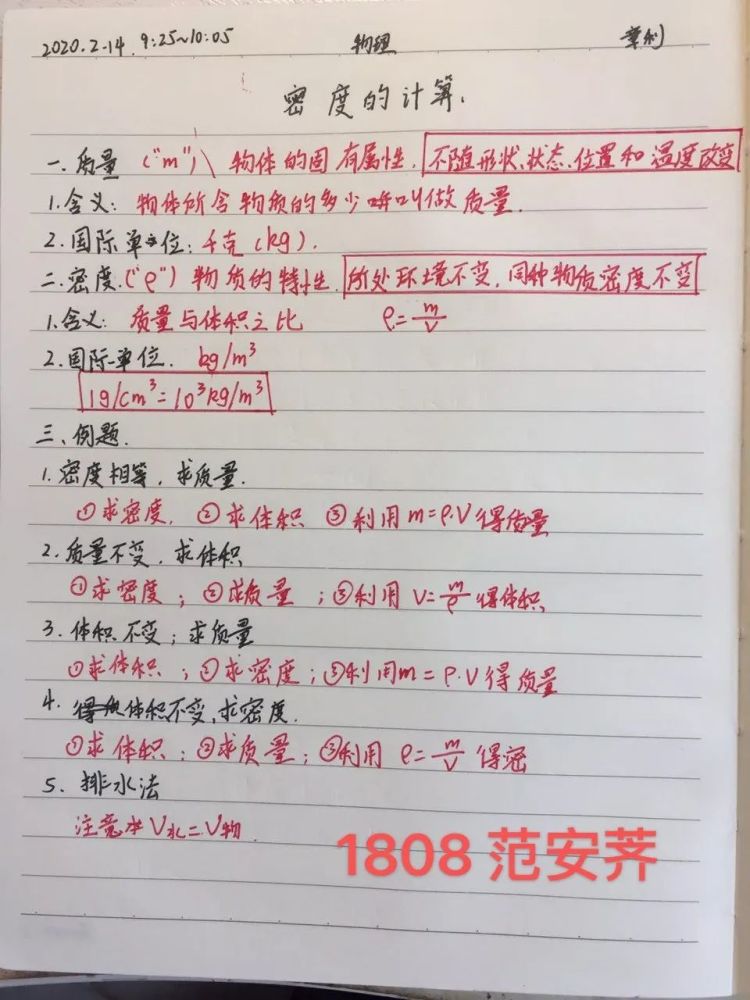 2020.2.14. 9:25~10:05 物理 章利
密度的计算.
一.质量 ("m") \ 物体的固有属性. 不随形状、状态、位置和温度改变
1.含义: 物体所含物质的多少叫做质量.
2.国际单位: 千克(kg).
二.密度.("ρ") 物质的特性. 所处环境不变, 同种物质密度不变
1.含义: 质量与体积之比 ρ=m/V
2.国际单位. kg/m³
1g/cm³=10³kg/m³
三、例题.
1.密度相等, 求质量.
①求密度. ②求体积 ③利用m=ρ.V得质量
2.质量不变, 求体积
①求密度; ②求质量; ③利用 V=m/ρ 得体积.
3.体积不变; 求质量
①求体积; ②求密度; ③利用m=ρ.V得质量
4. 体积不变,求密度.
①求体积; ②求质量; ③利用 ρ=m/V 得密
5. 排水法
注意 V水=V物
1808 范安荠